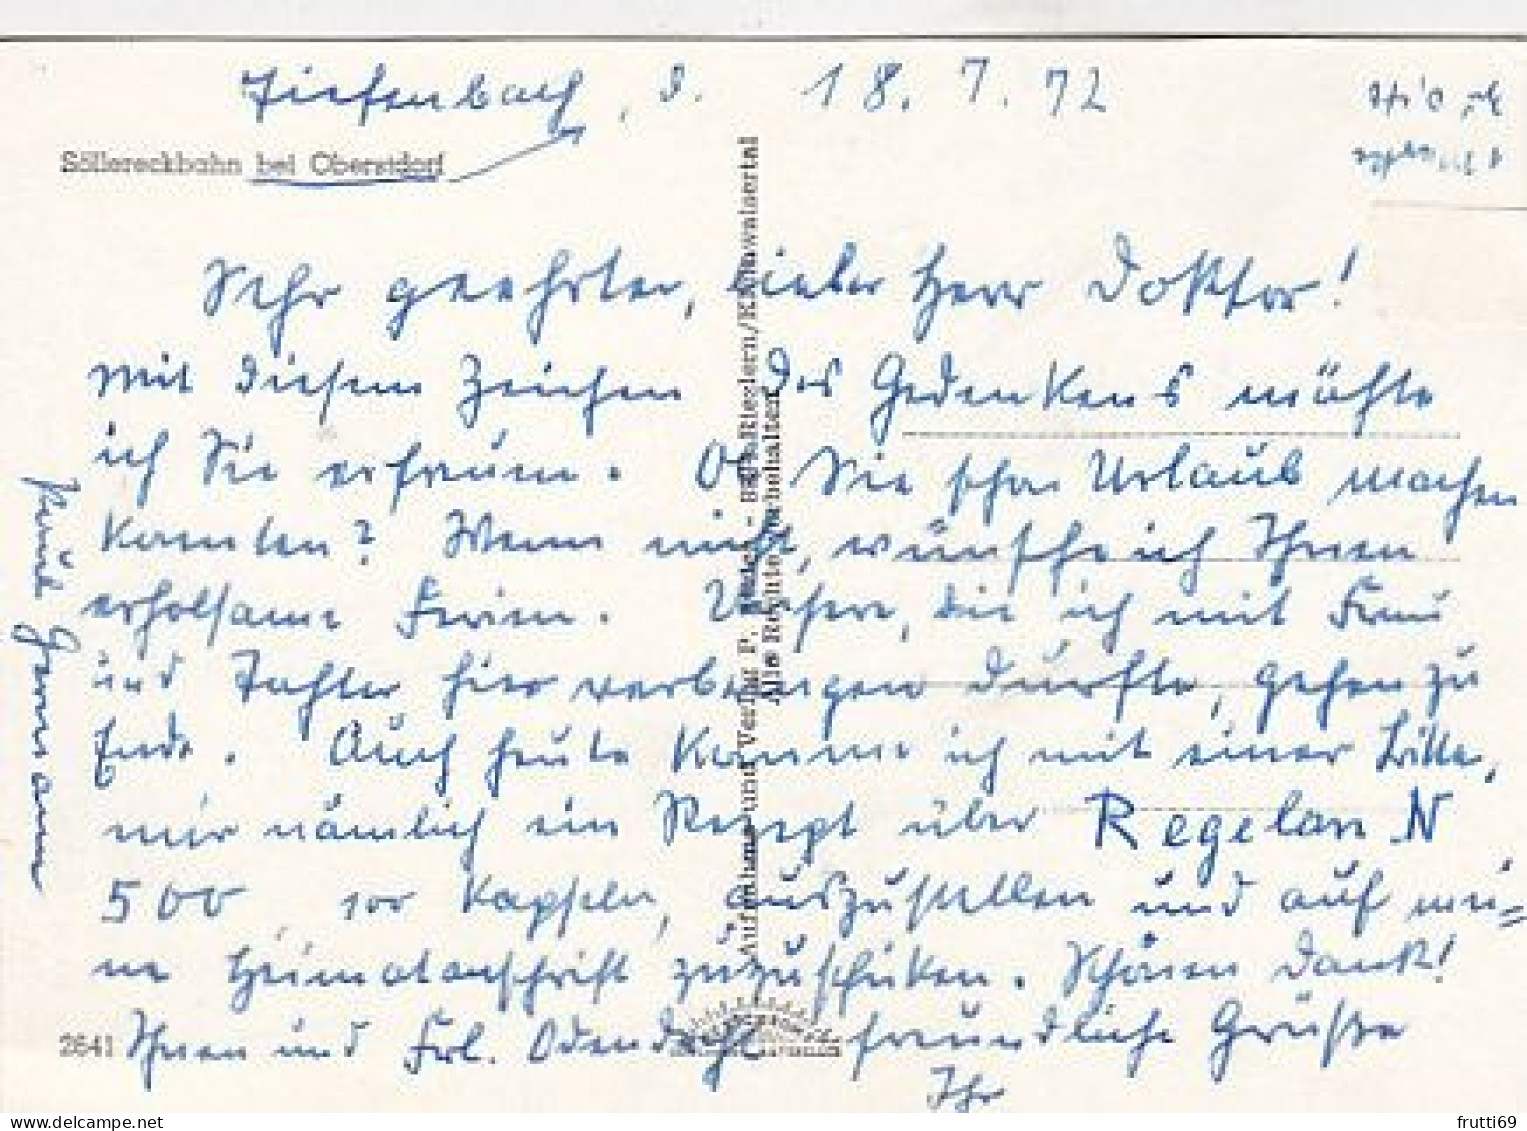 Tiefenbach, d. 18.7.72
Söllereckbahn bei Oberstdorf
Sehr geehrter, lieber Herr Doktor!
Mit diesem Zeichen des Gedenkens möchte
ich Sie erfreuen. Ob Sie schon Urlaub machen
konnten? Wenn nicht, wünsche ich Ihnen
erholsame Ferien. Unsere, die ich mit Frau
und Tochter hier verbringen durfte, gehen zu
Ende. Auch heute komme ich mit einer Bitte,
mir nämlich ein Rezept über Regelan N
500, 100 Kapseln, auszustellen und auf mei=
ne Heimatanschrift zuzuschicken. Schönen Dank!
Ihnen und Frl. Odendahl freundliche Grüße
Ihr
2641
Aufnahme und Verlag P.
Riezlern/Kleinwalsertal
Alle Rechte vorbehalten
frutti69